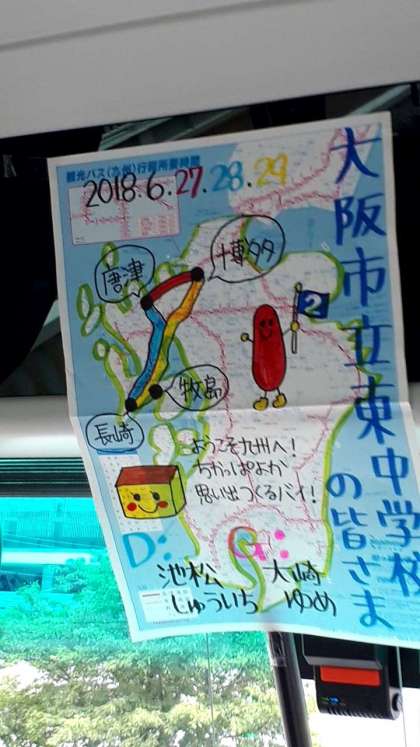 観光バス(九州)行程所要時間
2018.6.27.28.29
大阪市立東中学校
の皆さま
博多
唐津
2
牧島
長崎
ようこそ九州へ!
ちかっぱよか
思い出つくるバイ!
D: G:
池松 大崎
じゅういち ゆめ